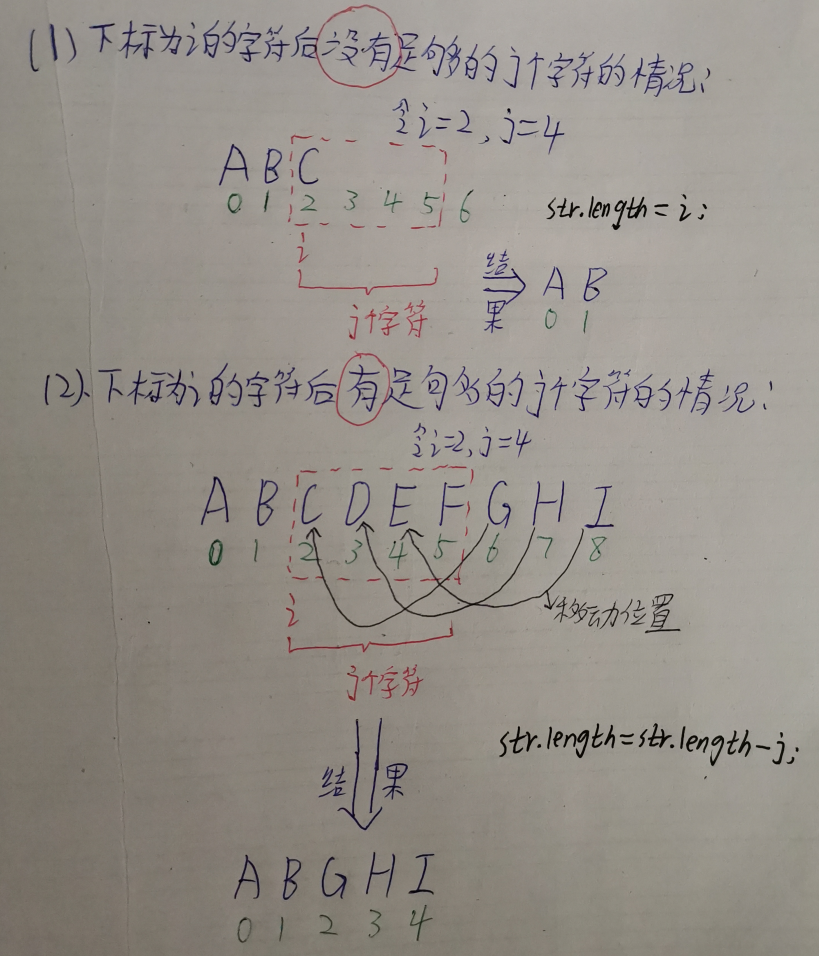 (1) 下标为i的字符后没有足够的j个字符的情况:
令i=2, j=4
A B C
0 1 2 3 4 5 6
str.length = i;
i
j个字符
结果
A B
0 1
(2). 下标为i的字符后有足够多的j个字符的情况:
令i=2, j=4
A B C D E F G H I
0 1 2 3 4 5 6 7 8
i
移动位置
j个字符
str.length=str.length-j;
结果
A B G H I
0 1 2 3 4